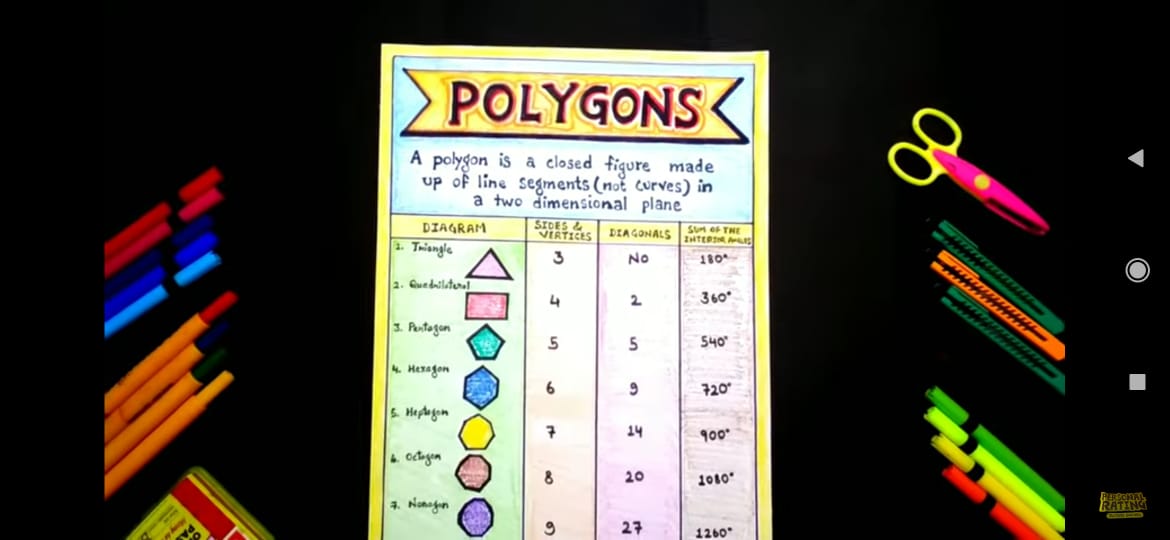 POLYGONS
A polygon is a closed figure made
up of line segments (not curves) in
a two dimensional plane
DIAGRAM SIDES & VERTICES DIAGONALS SUM OF THE INTERIOR ANGLES
1. Triangle 3 No 180°
2. Quadrilateral 4 2 360°
3. Pentagon 5 5 540°
4. Hexagon 6 9 720°
5. Heptagon 7 14 900°
6. Octagon 8 20 1080°
7. Nonagon 9 27 1260°
PERSONAL
RATING